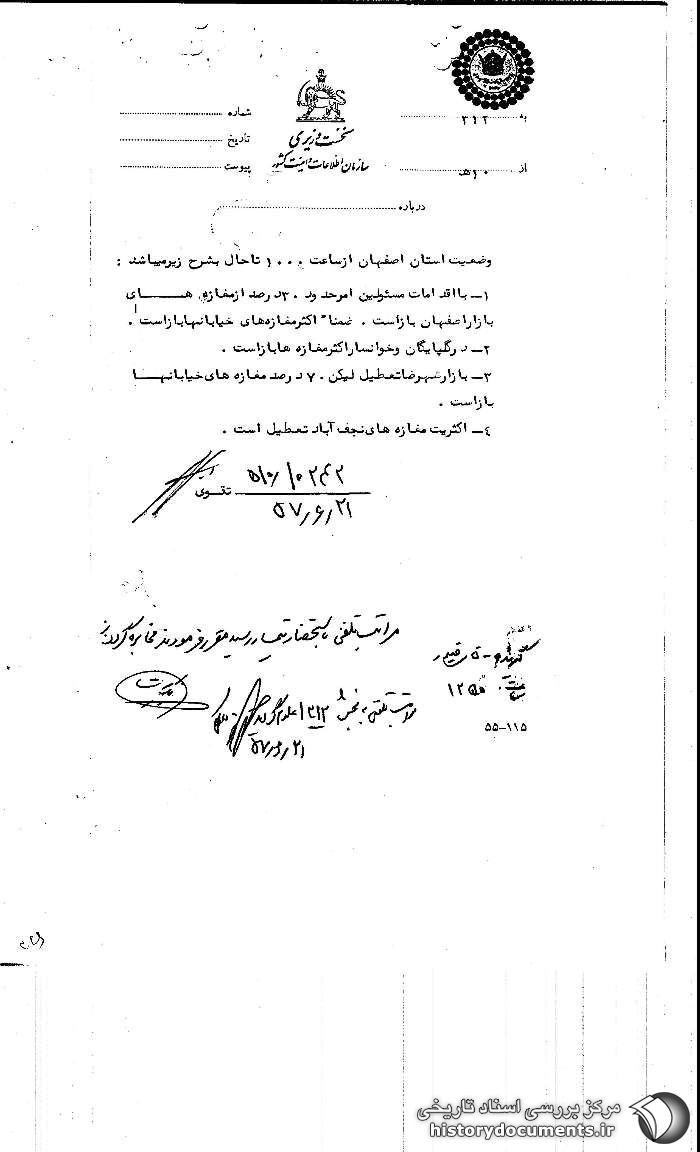 به ۳۱۲
شماره
نخست وزیری
تاریخ
سازمان اطلاعات و امنیت کشور
از ۱۰ هـ
پیوست
درباره
وضعیت استان اصفهان ازساعت ۱۰۰۰ تاحال بشرح زیرمیباشد :
۱ــ بااقدامات مسئولین امرحدود ۳۰درصد ازمغازه هــــای
بازاراصفهان بازاست . ضمنا" اکثرمغازه‌های خیابانهابازاست .
۲ــ درگلپایگان وخوانساراکثرمغازه هابازاست .
۳ــ بازارشهرضاتعطیل لیکن ۷۰ درصد مغازه های‌خیابانهــا
بازاست .
٤ــ اکثریت مغازه های‌نجف آباد تعطیل است .
تقوی
۵۷٫۶٫۲۱
مراتب تلفنی باستحضار تیمسار رسید مقرر فرمودند مخابره گردد
گیرنده
ساعت ۱۲۵۰
مراتب تلفنی به بخش ۳۱۲ اعلام گردید
۵۷٫۶٫۲۱
۵۵-۱۱۵
مرکز بررسی اسناد تاریخی
historydocuments.ir